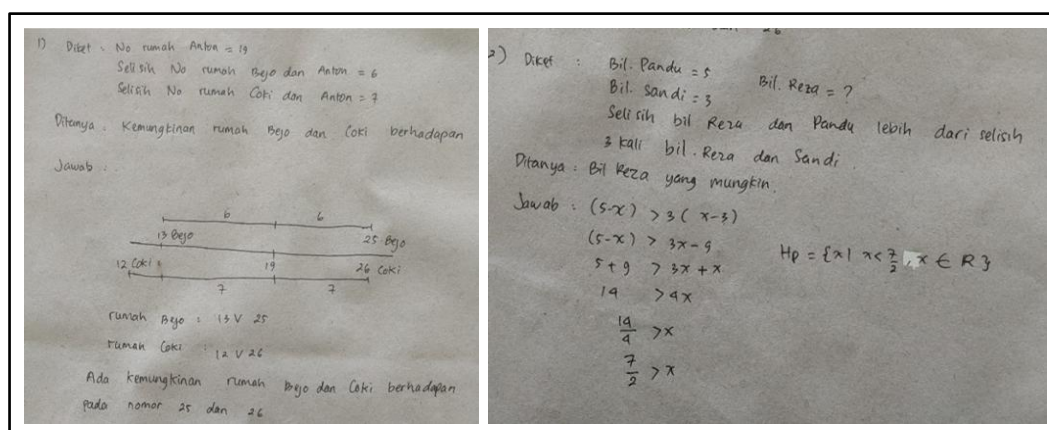 1) Diket : No rumah Anton = 19
Selisih No rumah Bejo dan Anton = 6
Selisih No rumah Coki dan Anton = 7
Ditanya : Kemungkinan rumah Bejo dan Coki berhadapan
Jawab :
6 6
13 Bejo 25 Bejo
12 Coki 19 26 Coki
7 7
rumah Bejo : 13 V 25
rumah Coki : 12 V 26
Ada kemungkinan rumah Bejo dan Coki berhadapan
pada nomor 25 dan 26
2) Diket : Bil. Pandu = 5
Bil. Sandi = 3
Bil. Reza = ?
Selisih bil Reza dan Pandu lebih dari selisih
3 kali bil. Reza dan Sandi
Ditanya : Bil Reza yang mungkin.
Jawab : (5-x) > 3(x-3)
(5-x) > 3x-9
5+9 > 3x+x
14 > 4x
14/4 > x
7/2 > x
Hp = {x| x< 7/2 , x ∈ R}